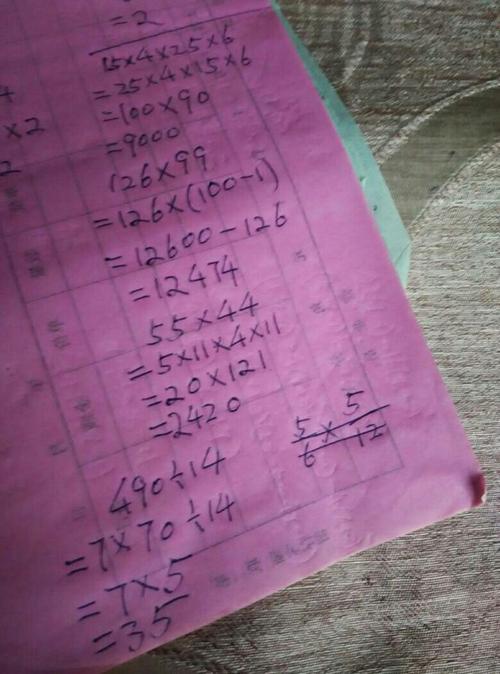 =2
15×4×25×6
=25×4×15×6
=100×90
=9000
126×99
=126×(100-1)
=12600-126
=12474
55×44
=5×11×4×11
=20×121
=2420
490÷14
=7×70÷14
=7×5
=35
5/6 × 5/12
4
×2
2